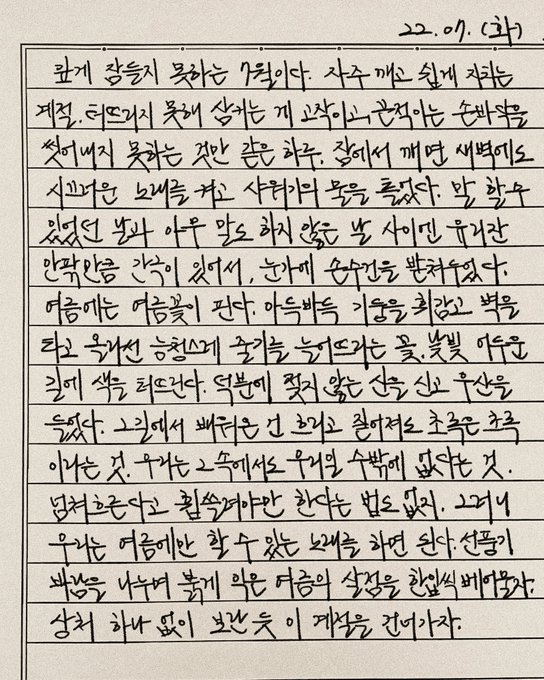 22.07.(화)
깊게 잠들지 못하는 7월이다. 자주 깨고 쉽게 지치는
계절. 터뜨리지 못해 삼키는 게 고작이고, 끈적이는 손바닥을
씻어내지 못하는 것만 같은 하루. 잠에서 깨면 새벽에도
시끄러운 노래를 켜고 샤워기의 물을 틀었다. 말 할 수
있었던 날과 아무 말도 하지 않은 날 사이엔 유리잔
안팎만큼 간극이 있어서, 눈가에 손수건을 받쳐두었다.
여름에는 여름꽃이 핀다. 아득바득 기둥을 휘감고 벽을
타고 올라선 능청스레 줄기를 늘어뜨리는 꽃. 낮빛 어두운
길에 색을 터뜨린다. 덕분에 젖지 않는 신을 신고 우산을
들었다. 그 길에서 배워온 건 흐리고 짙어져도 초록은 초록
이라는 것. 우리는 그 속에서도 우리일 수밖에 없다는 것.
넘쳐흐른다고 휩쓸려야만 한다는 법도 없지. 그러니
우리는 여름에만 할 수 있는 노래를 하면 된다. 선풍기
바람을 나누며 붉게 익은 여름의 살점을 한입씩 베어물자.
상처 하나 없이 보란 듯 이 계절을 건너가자.